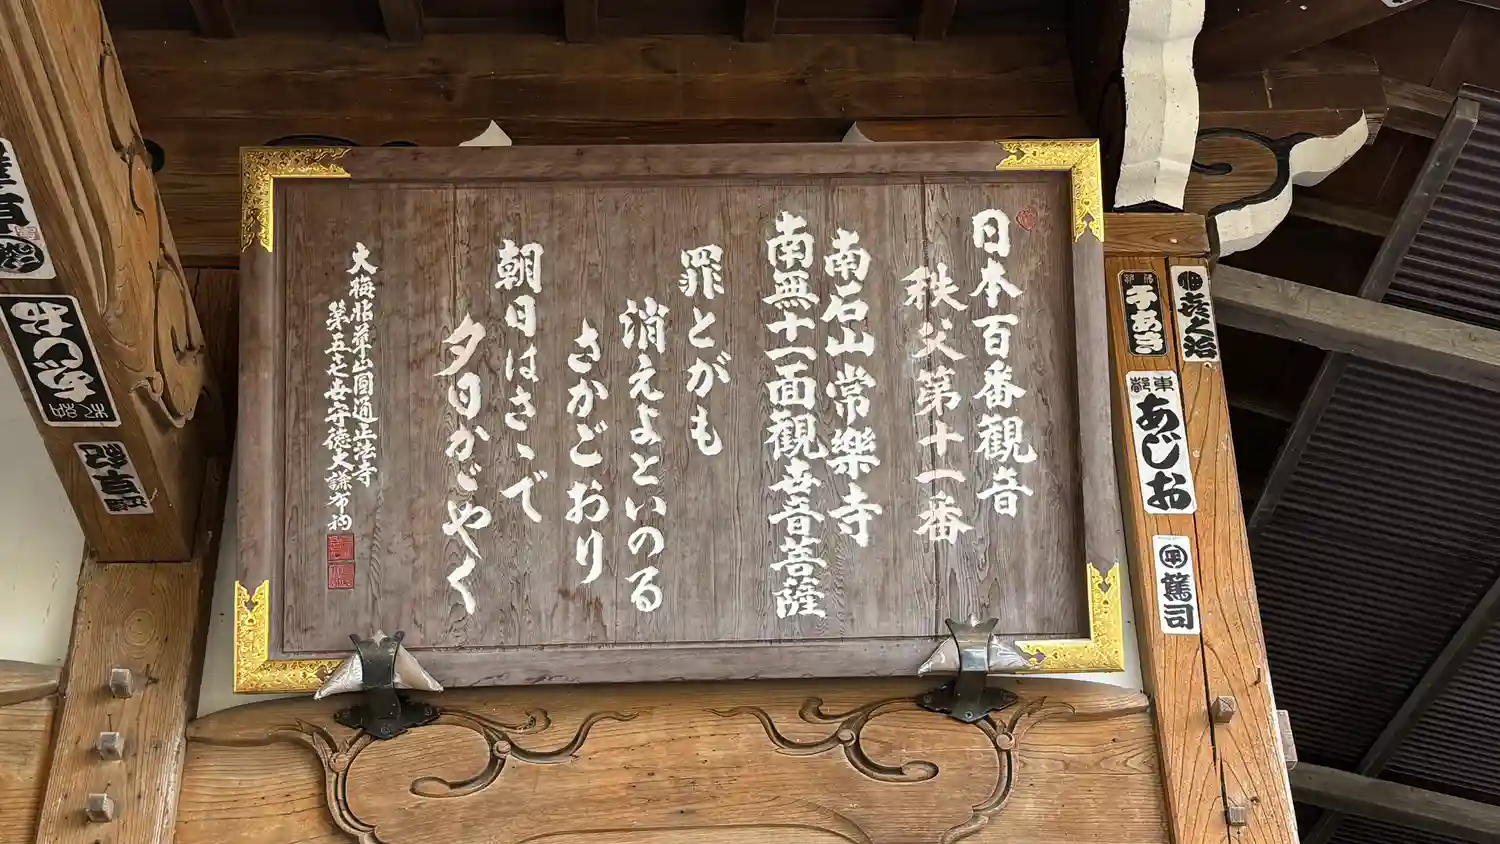 日本百番観音
秩父第十一番
南石山常樂寺
南無十一面観世音菩薩
罪とがも
消えよといのる
さかごおり
朝日はさゝで
夕日かゞやく
大梅拈華山圓通正法寺
第五七世守徳大謙布衲
喜久治
千あき
東都
あじお
篤司